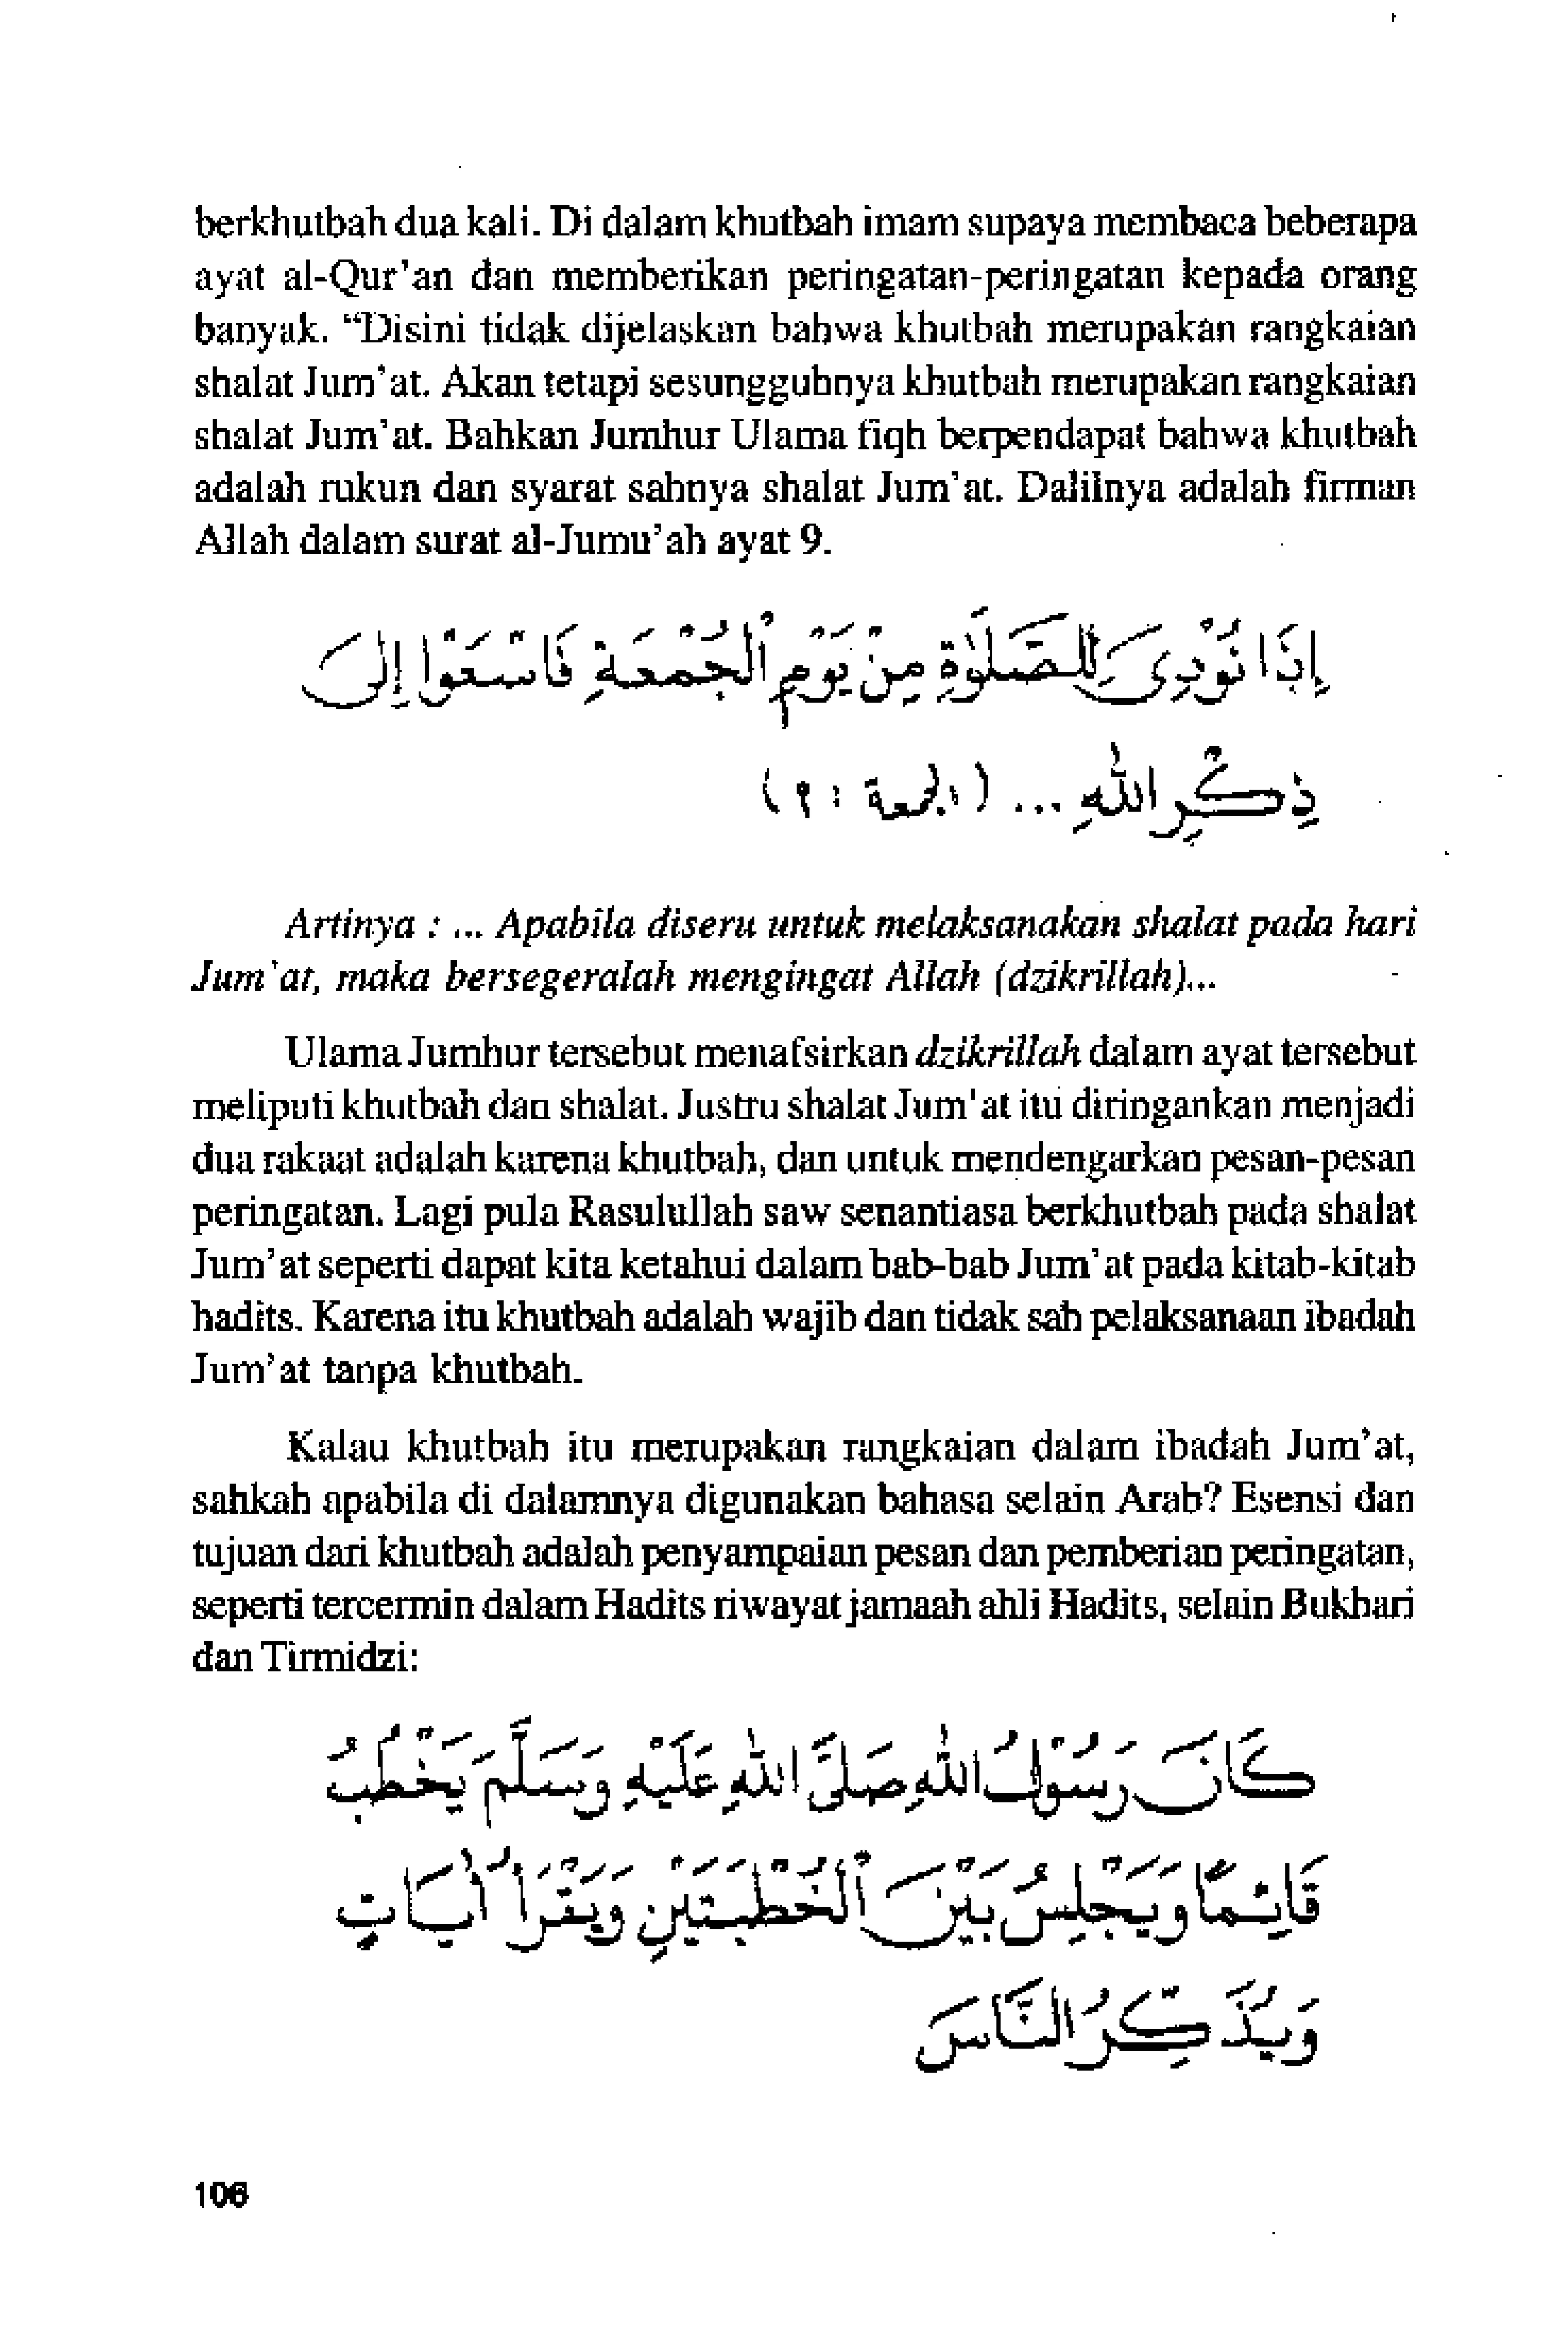 berkhutbah dua kali. Di dalam khutbah imam supaya membaca beberapa
ayat al-Qur'an dan memberikan peringatan-peringatan kepada orang
banyak. “Disini tidak dijelaskan bahwa khutbah merupakan rangkaian
shalat Jum'at. Akan tetapi sesungguhnya khutbah merupakan rangkaian
shalat Jum'at. Bahkan Jumhur Ulama fiqh berpendapat bahwa khutbah
adalah rukun dan syarat sahnya shalat Jum'at. Dalilnya adalah firman
Allah dalam surat al-Jumu'ah ayat 9.
إِذَا نُوْدِىَ لِلصَّلَوٰةِ مِنْ يَوْمِ الْجُمْعَةِ فَاسْعَوْا إِلَى
ذِكْرِ اللهِ ... (الجمعة : ٩)
Artinya : ... Apabila diseru untuk melaksanakan shalat pada hari
Jum'at, maka bersegeralah mengingat Allah (dzikrillah)...
Ulama Jumhur tersebut menafsirkan dzikrillah dalam ayat tersebut
meliputi khutbah dan shalat. Justru shalat Jum'at itu diringankan menjadi
dua rakaat adalah karena khutbah, dan untuk mendengarkan pesan-pesan
peringatan. Lagi pula Rasulullah saw senantiasa berkhutbah pada shalat
Jum'at seperti dapat kita ketahui dalam bab-bab Jum'at pada kitab-kitab
hadits. Karena itu khutbah adalah wajib dan tidak sah pelaksanaan ibadah
Jum'at tanpa khutbah.
Kalau khutbah itu merupakan rangkaian dalam ibadah Jum'at,
sahkah apabila di dalamnya digunakan bahasa selain Arab? Esensi dan
tujuan dari khutbah adalah penyampaian pesan dan pemberian peringatan,
seperti tercermin dalam Hadits riwayat jamaah ahli Hadits, selain Bukhari
dan Tirmidzi:
كَانَ رَسُوْلُ اللهِ صَلَّى اللهِ عَلَيْهِ وَسَلَّمَ يَخْطُبُ
قَائِمًا وَيَجْلِسُ بَيْنَ الْخُطْبَتَيْنِ وَيَقْرَأُ اٰيَاتٍ
وَيُذَكِّرُ النَّاسَ
106